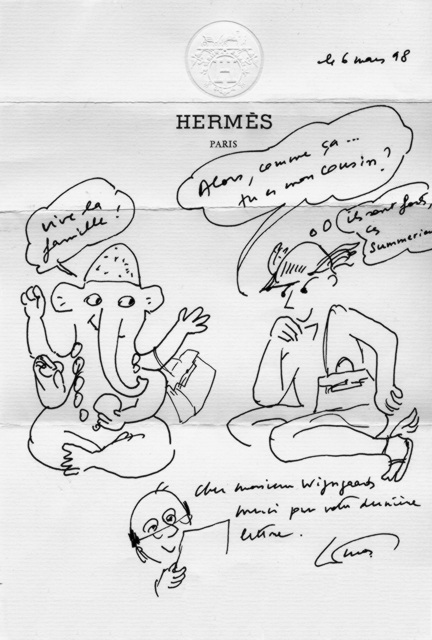 le 6 mars 98
HERMÈS
PARIS
Alors, comme ça ...
tu es mon cousin ?
vive la
famille !
ils sont forts,
ces
summeriens
Cher monsieur Wijngaards
merci pour votre dernière
lettre.